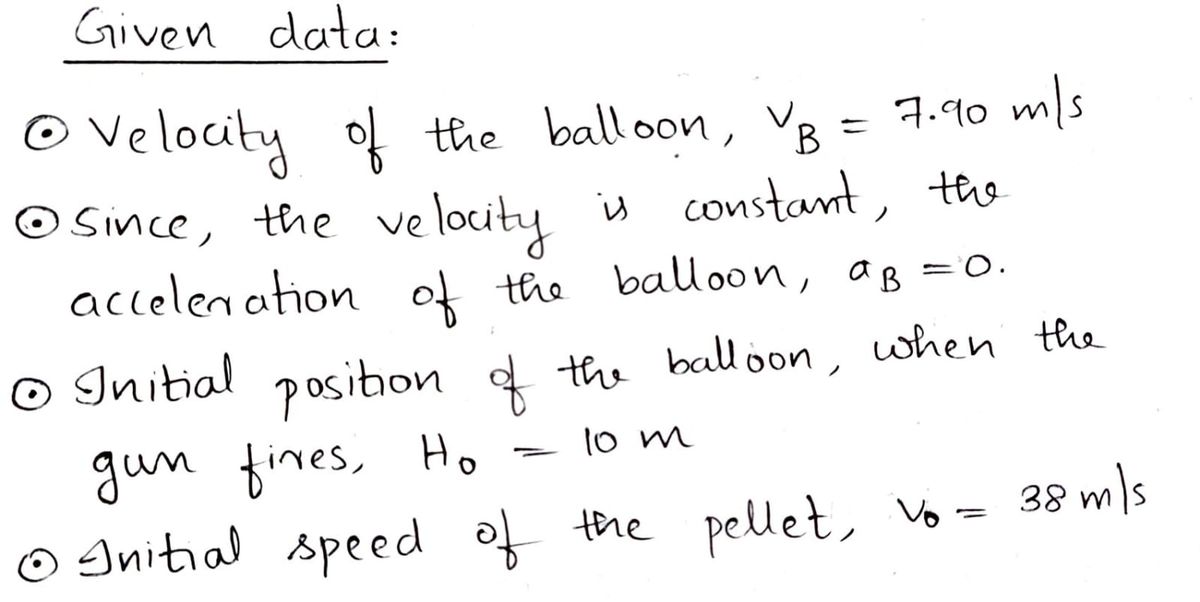 Given data:
⊙ Velocity of the balloon, V_B = 7.90 m/s
⊙ Since, the velocity is constant, the
acceleration of the balloon, a_B = 0.
⊙ Initial position of the balloon, when the
gun fires, H_0 = 10 m
⊙ Initial speed of the pellet, V_0 = 38 m/s